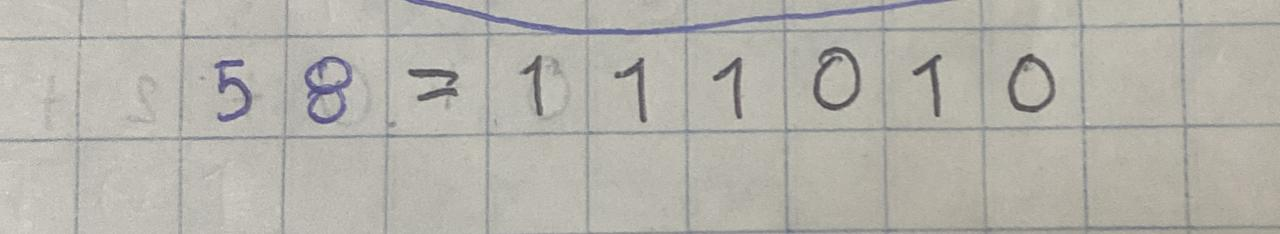 58 = 111010